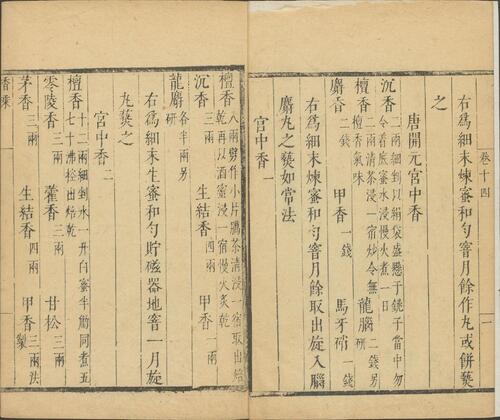 右爲細末煉蜜和勻窨月餘作丸或餅爇
之
唐開元宮中香
沉香二兩細剉以絹袋盛懸于銚子當中勿
令着底蜜水浸慢火煮一日
檀香二兩清茶浸一宿炒令無
檀香氣味
龍腦二錢另
研
麝香二錢
甲香一錢
馬牙硝一錢
右爲細末煉蜜和勻窨月餘取出旋入腦
麝丸之爇如常法
宮中香一
卷十四
一
檀香八兩劈作小片臘茶清浸一宿取出焙
乾再以酒蜜浸一宿慢火炙乾
沉香三兩
生結香四兩
甲香一兩
龍麝各半兩另
研
右爲細末生蜜和勻貯磁器地窨一月旋
丸爇之
宮中香二
檀香十二兩細剉水一升白蜜半觔同煮五
七十沸控出焙乾
零陵香三兩
藿香三兩
甘松三兩
茅香三兩
生結香四兩
甲香三兩法
製
香乘